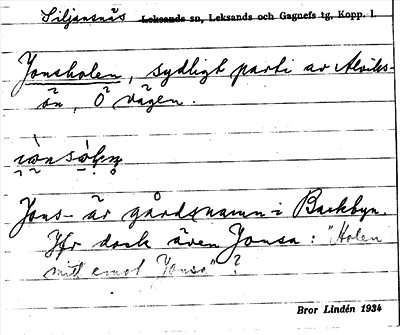 Siljansnäs Leksands sn, Leksands och Gagnefs tg, Kopp. l.
Jonsholen, sydligt parti av Alviks-
ön, O vägen.
Jons- är gårdsnamn i Backbyn.
Jfr dock även Jonsa: "Holen
mitt emot Jonsa"?
Bror Lindén 1934